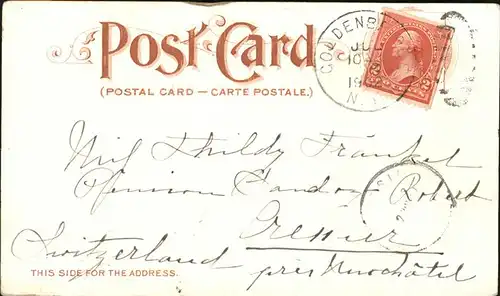 Post Card
(POSTAL CARD — CARTE POSTALE.)
Miss Thildy Fränkel
Pension Gandoz-Robert
Cressier
Switzerland près Neuchâtel
THIS SIDE FOR THE ADDRESS.